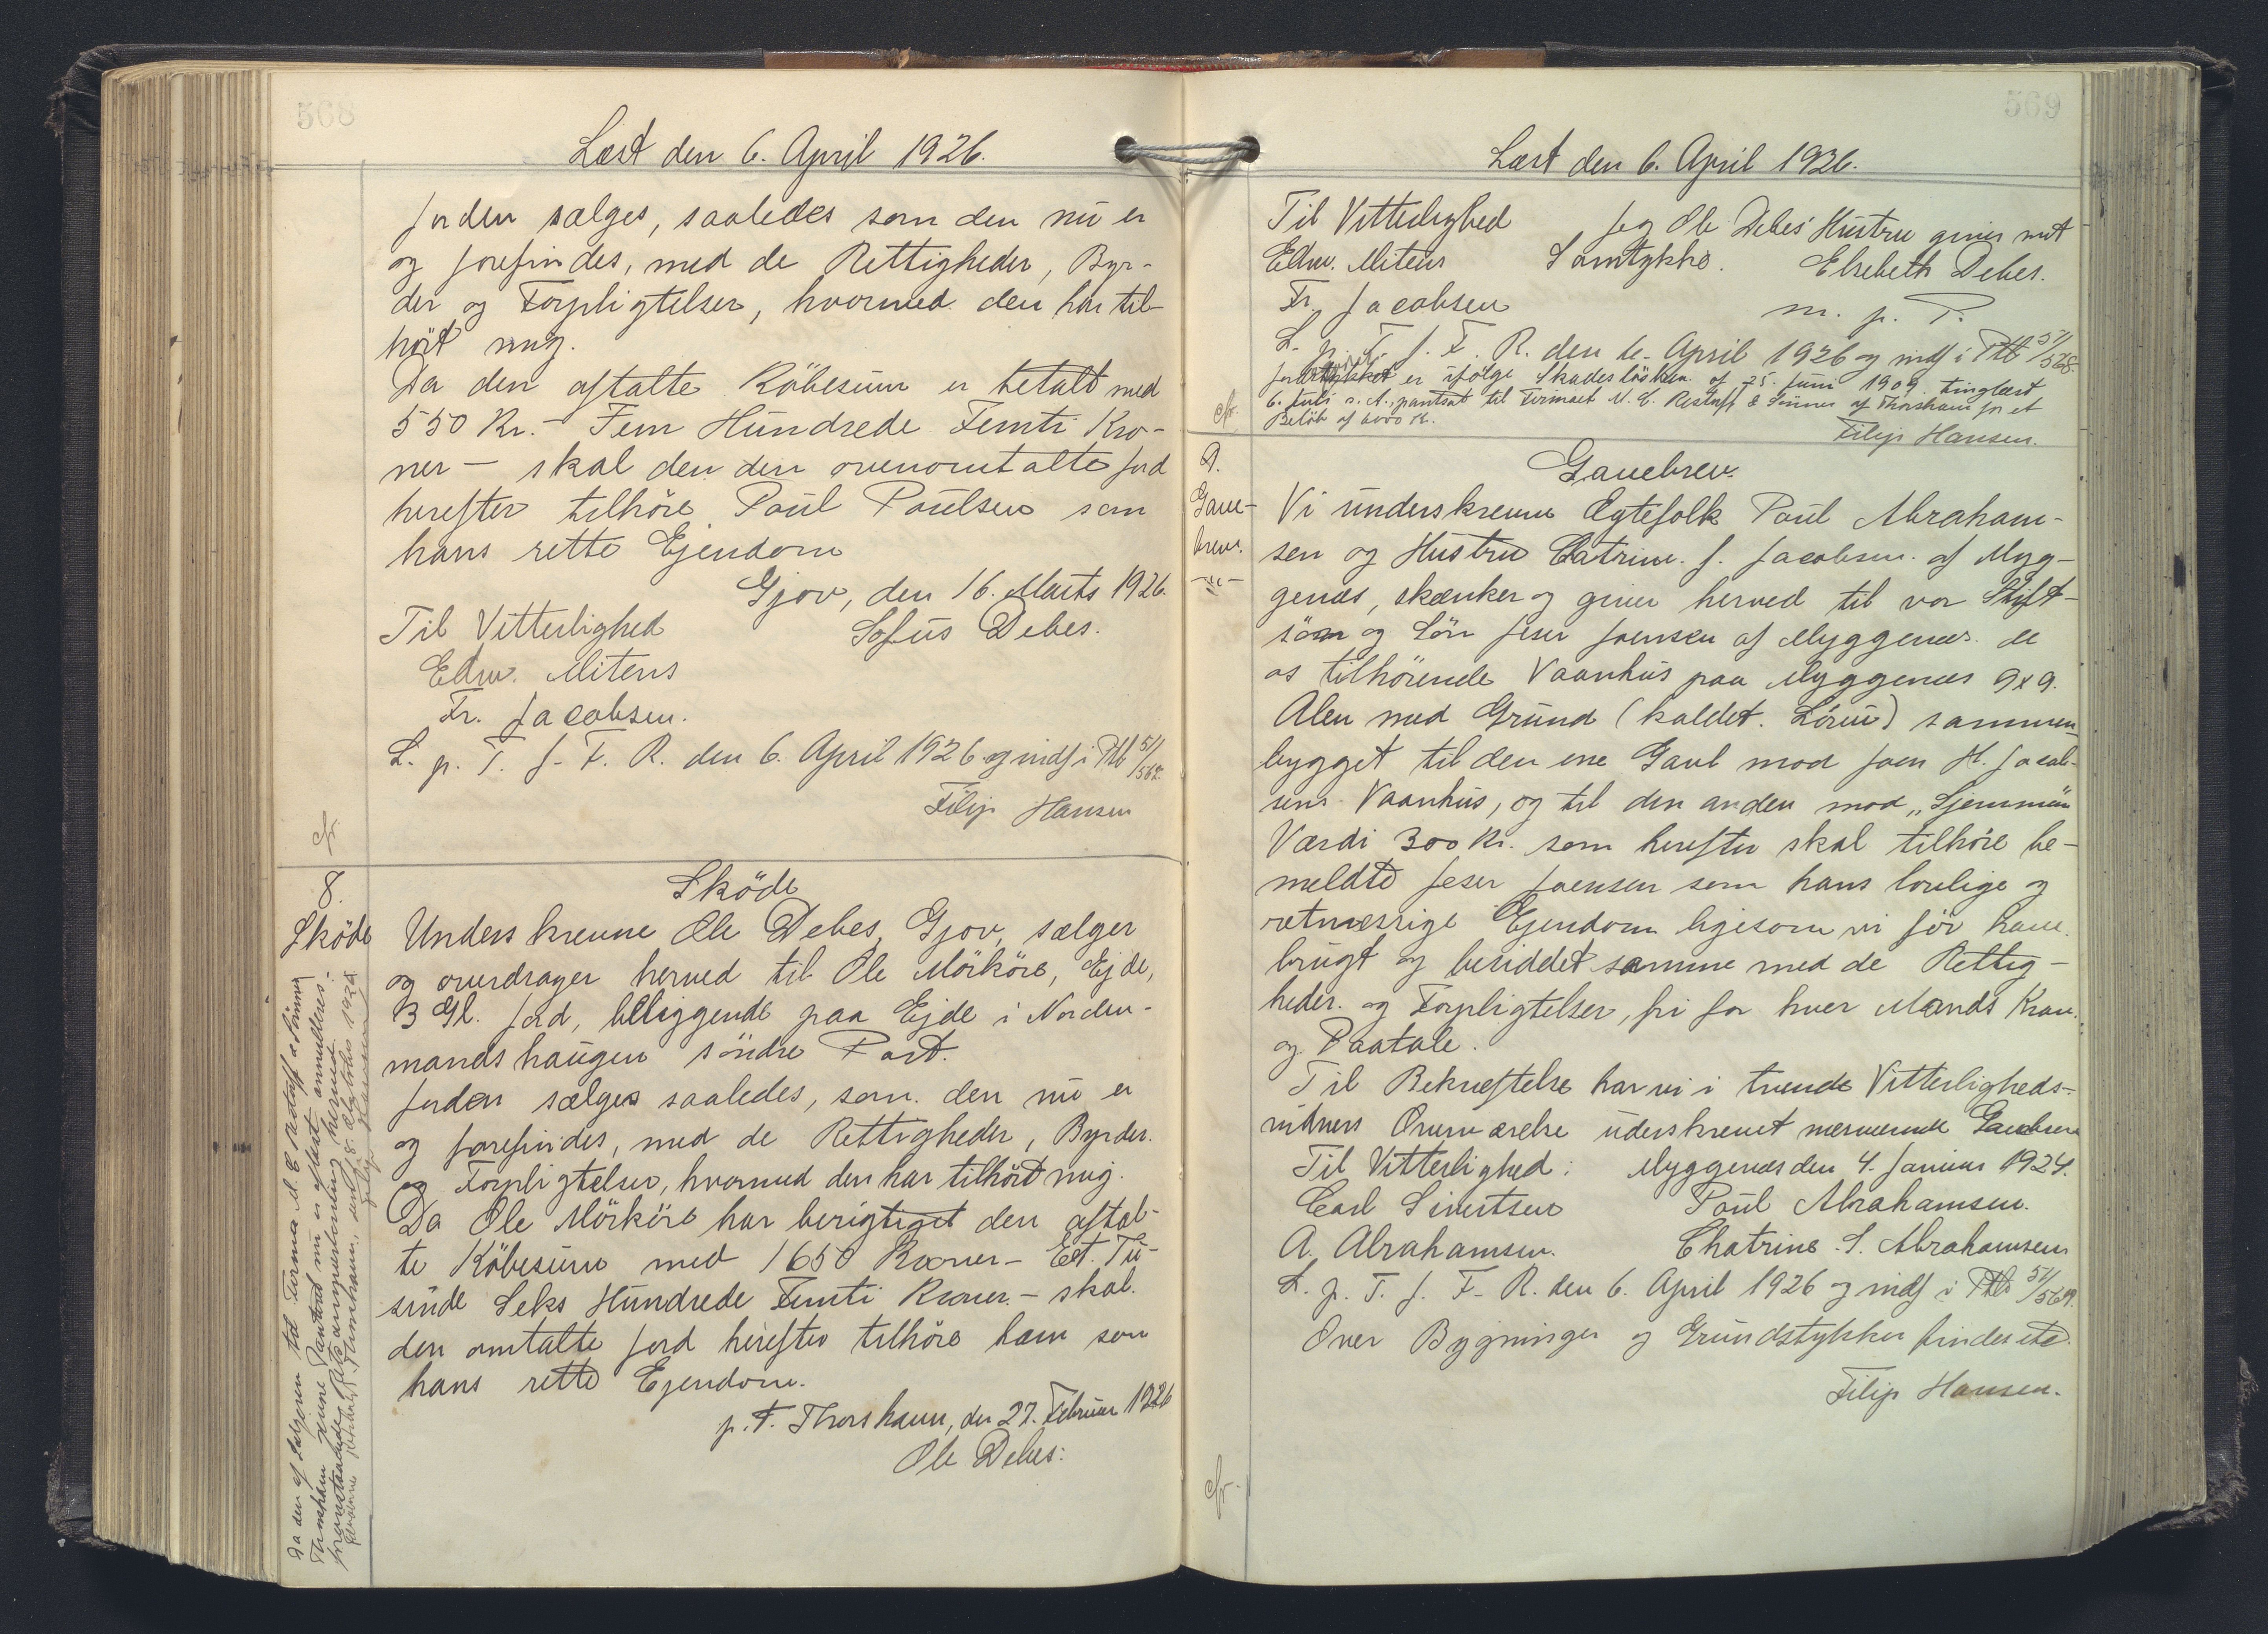 568
Læst den 6. April 1926.
Jorden sælges, saaledes som den nu er
og forefindes, med de Rettigheder, Byr-
der og Forpligtelser, hvormed den har til-
hört mig.
Da den aftalte Köbesum er betalt med
550 Kr. - Fem Hundrede Femti Kro-
ner - skal den den ovenomtalte Jord
herefter tilhöre Poul Poulsen som
hans rette Ejendom
Gjov, den 16. Marts 1926.
Til Vitterlighed
Sofus Debes.
Edw. Mitens
Fr. Jacobsen.
L. p. T. f. F. R. den 6. April 1926 og indf i Ptb 51/568.
Filip Hansen
cfr.
8.
Sköde
Sköde
Underskrevne Ole Debes, Gjov, sælger
og overdrager herved til Ole Mörköre, Ejde,
3 Gl. Jord, beliggende paa Ejde i Norden-
mandshaugen söndre Part.
Jorden sælges saaledes, som den nu er
og forefindes, med de Rettigheder, Byrder
og Forpligtelser, hvormed den har tilhört mig.
Da Ole Mörköre har berigtiget den aftal-
te Köbesum med 1650 Kroner - Et Tu-
sinde Seks Hundrede Femti Kroner - skal
den omtalte Jord herefter tilhöre ham som
hans rette Ejendom.
p. t. Thorshavn, den 27. Februar 1926
Ole Debes.
Da den af Sælgeren til Firma M. C. Restorff & Sönner
Thorshavn givne Panteret nu er aflæst annulleres
foranstaaende Retsanmærkning herved.
Færöerne Thorshavn, den 8. Oktober 1928
Filip Hansen
569
Læst den 6. April 1926.
Til Vitterlighed
Jeg Ole Debes' Hustru giver mit
Edw. Mitens
Samtykke. Elsebeth Debes.
Fr. Jacobsen
m. p. P.
L. p. T. f. F. R. den 6. April 1926 og indf i Ptb 51/568.
er ifölge Skadeslösbrev af 25. Juni 1909 tinglæst
6. Juli s. A., pantsat til Firmaet M. C. Restorff & Sönner af Thorshavn for et
Belöb af 6000 K.
Filip Hansen.
cfr.
9.
Gave-
brev.
Gavebrev.
Vi underskrevne Ægtefolk Poul Abraham-
sen og Hustru Catrine J. Jacobsen af Myg-
genæs, skænker og giver herved til vor Stift-
sön og Sön Jeser Joensen af Myggenæs de
os tilhörende Vaanhus paa Myggenæs 9x9.
Alen med Grund (kaldet Löru) sammen
bygget til den ene Gavl mod Joen H. Jacob-
sens Vaanhus, og til den anden mod
Værdi 300 Kr. som herefter skal tilhöre be-
meldte Jeser Joensen som hans lovlige og
retmæssige Ejendom ligesom vi för have
brugt og besiddet samme med de Rettig-
heder og Forpligtelser, fri for hver Mands Krav
og Paatale.
Til Bekræftelse har vi i tvende Vitterligheds-
vidners Overværelse underskrevet nærværende Gavebrev
Til Vitterlighed: Myggenæs den 4. Januar 1924.
Carl Sivertsen
Poul Abrahamsen.
A. Abrahamsen.
Chatrine S. Abrahamsen
L. p. T. f. F. R. den 6. April 1926 og indf i Ptb 51/569.
Over Bygninger og Grundstykker findes etc.
Filip Hansen.
cfr.